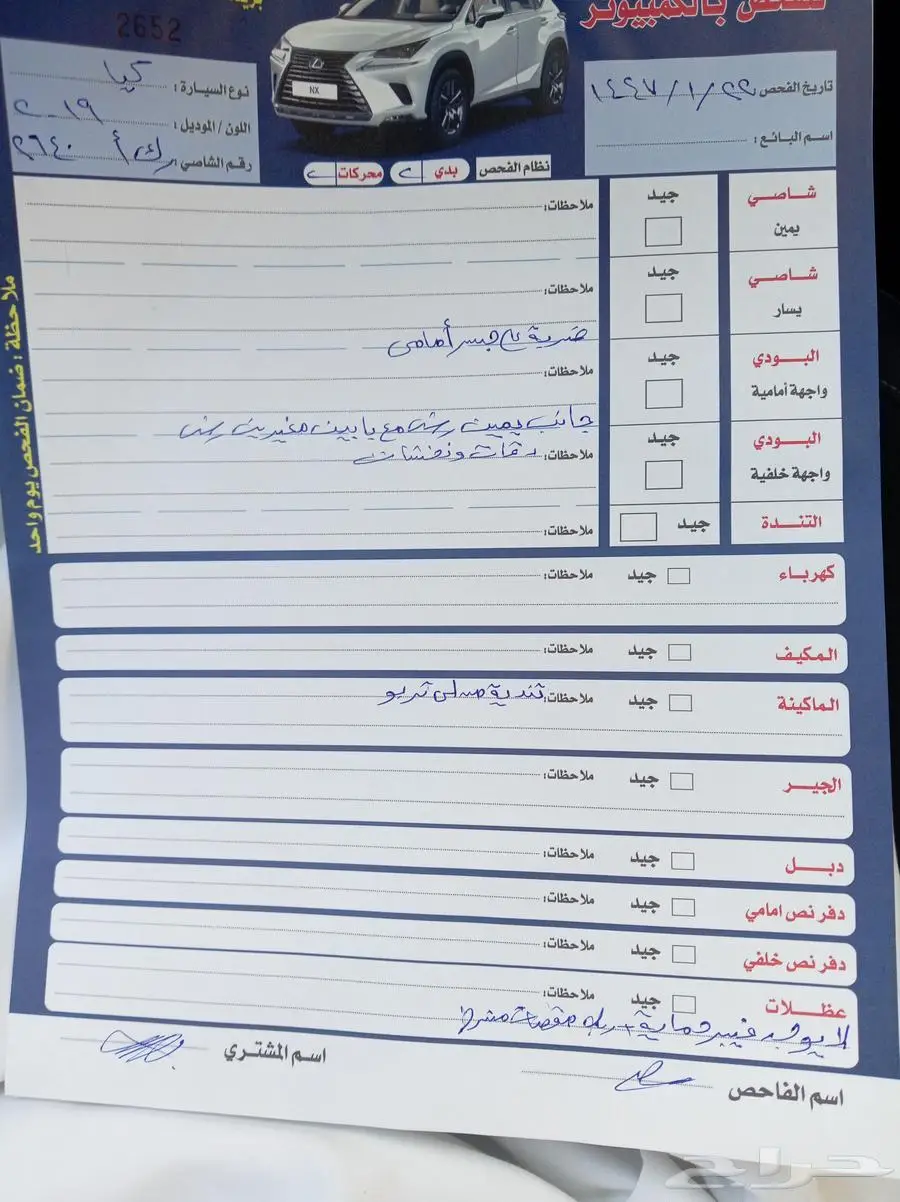 بالكمبيوتر
2652
NX
تاريخ الفحص: ١٤٤٧/١/٢٩
اسم البائع:
نوع السيارة: كيا
اللون / الموديل: ٢٠١٩
رقم الشاصي:
نظام الفحص بدي محركات
شاصي يمين جيد ملاحظات:
شاصي يسار جيد ملاحظات:
ضربة ع جسر أمامي
البودي واجهة أمامية جيد ملاحظات:
جانب يمين رش مع بابين مغيرين رش
البودي واجهة خلفية جيد ملاحظات: دقات ونغشات
التندة جيد ملاحظات:
كهرباء جيد ملاحظات:
المكيف جيد ملاحظات:
الماكينة جيد ملاحظات: تندية من تربو
الجير جيد ملاحظات:
دبل جيد ملاحظات:
دفر نص امامي جيد ملاحظات:
دفر نص خلفي جيد ملاحظات:
عظلات جيد ملاحظات:
لا يوجد فيبر حماية + ربل مقصات مشرخ
اسم الفاحص
اسم المشتري
ملاحظة : ضمان الفحص يوم واحد
حراج